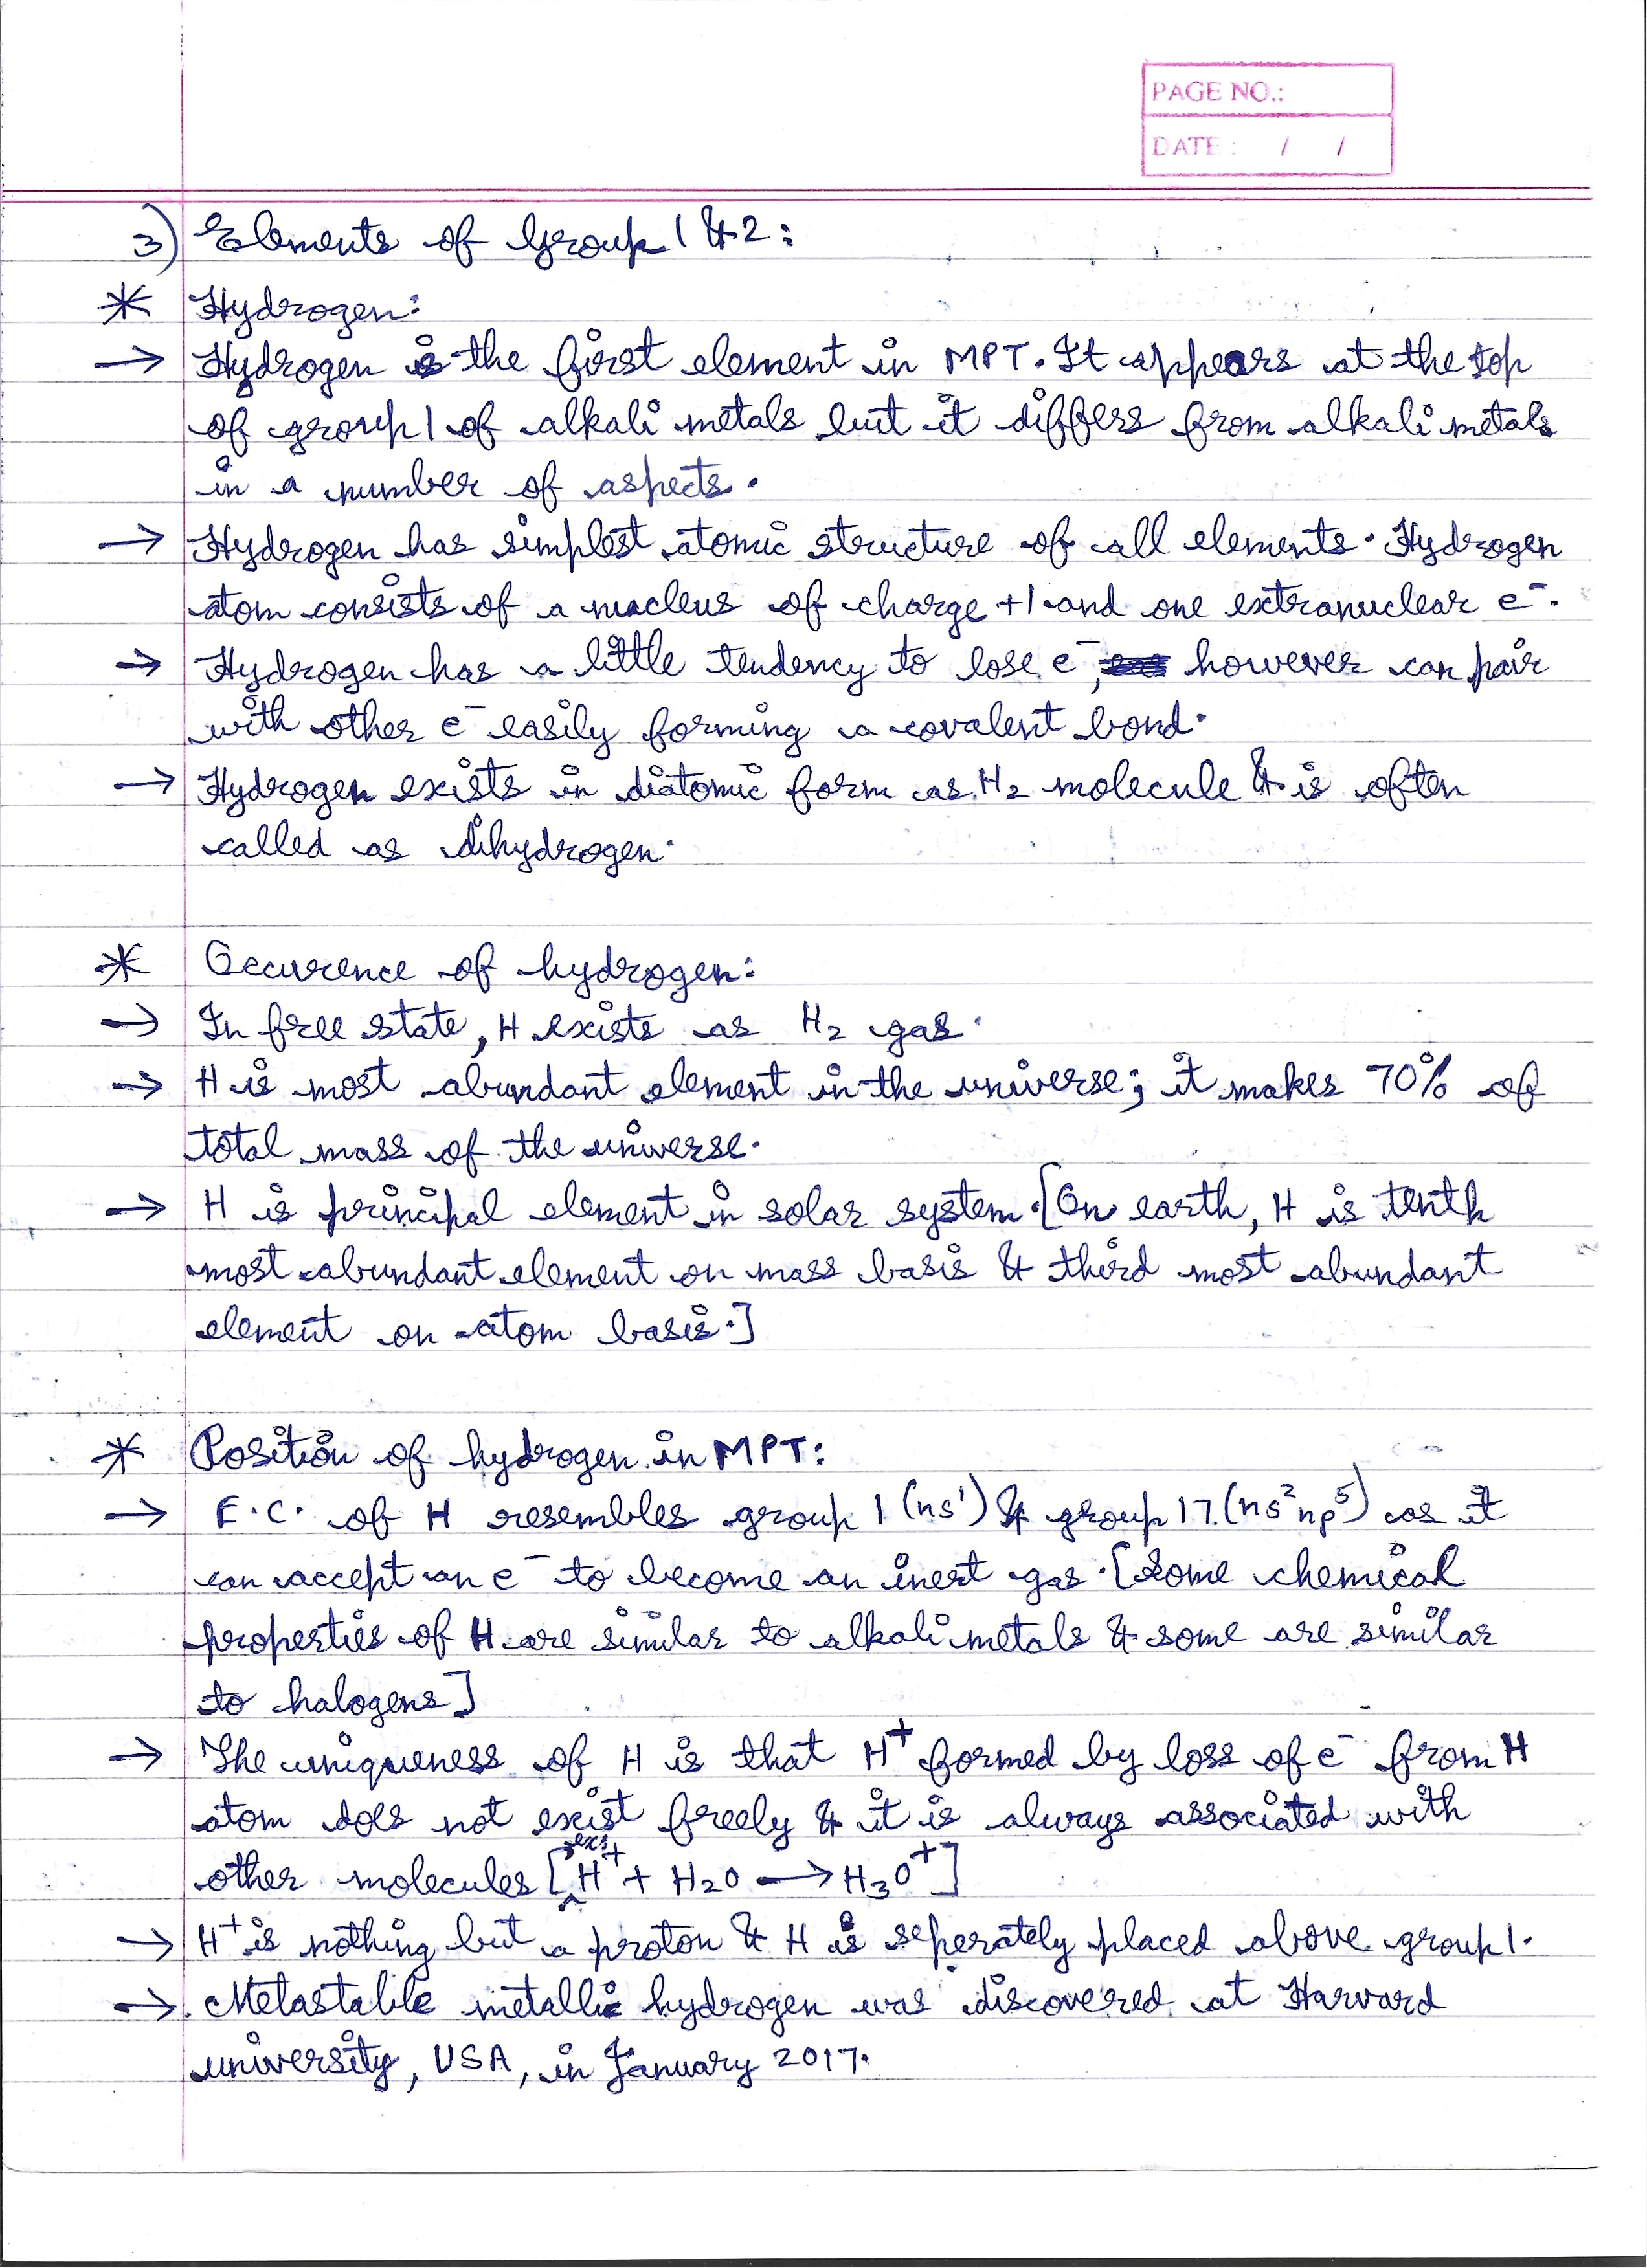 PAGE NO.:
DATE : / /
3) Elements of Group 1 & 2:
* Hydrogen:
→ Hydrogen is the first element in MPT. It appears at the top
of group 1 of alkali metals but it differs from alkali metals
in a number of aspects.
→ Hydrogen has simplest atomic structure of all elements. Hydrogen
atom consists of a nucleus of charge +1 and one extranuclear e⁻.
→ Hydrogen has a little tendency to lose e⁻, however can pair
with other e⁻ easily forming a covalent bond.
→ Hydrogen exists in diatomic form as H₂ molecule & is often
called as dihydrogen.
* Occurence of hydrogen:
→ In free state, H exists as H₂ gas.
→ H is most abundant element in the universe; it makes 70% of
total mass of the universe.
→ H is principal element in solar system. [On earth, H is tenth
most abundant element on mass basis & third most abundant
element on atom basis.]
* Position of hydrogen in MPT:
→ E.C. of H resembles group 1 (ns¹) & group 17 (ns² np⁵) as it
can accept an e⁻ to become an inert gas. [Some chemical
properties of H are similar to alkali metals & some are similar
to halogens]
→ The uniqueness of H is that H⁺ formed by loss of e⁻ from H
atom does not exist freely & it is always associated with
other molecules [ex: H⁺ + H₂O → H₃O⁺]
→ H⁺ is nothing but a proton & H is seperately placed above group 1.
→ Metastable metallic hydrogen was discovered at Harvard
university, USA, in January 2017.